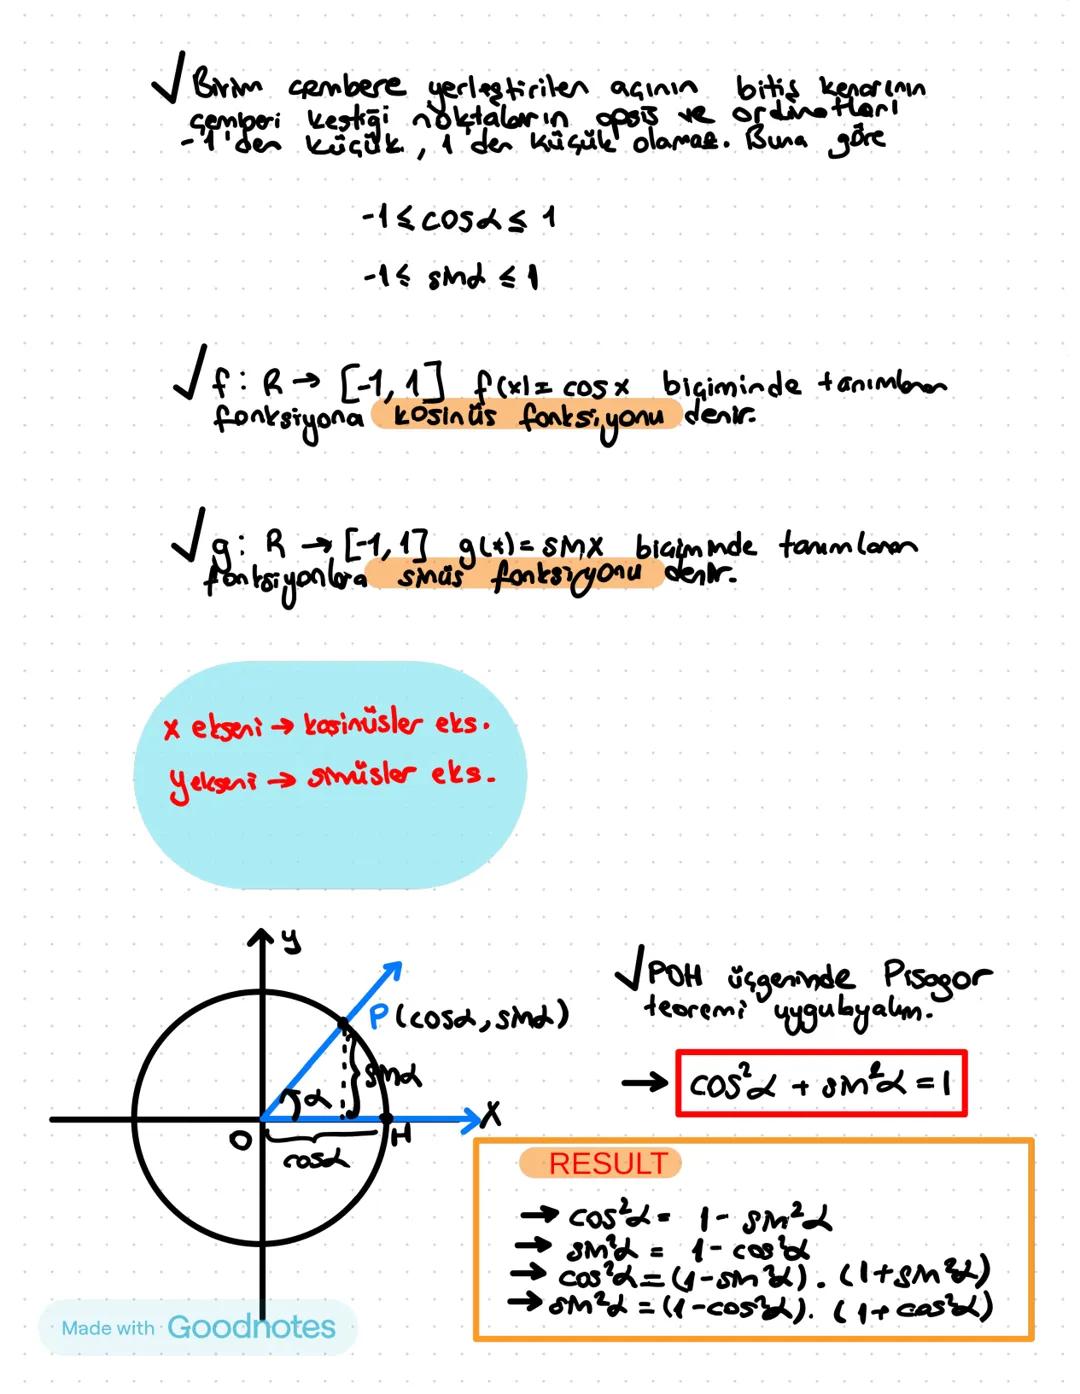 ✓ Birim çembere yerleştirilen açının bitiş kenarının
çemberi kestiği noktaların apsis ve ordinatları
-1'den küçük, 1'den küçük olamaz. Buna göre
-1 ≤ cosα ≤ 1
-1 ≤ sinα ≤ 1
✓ f: R → [-1, 1] f(x) = cosx biçiminde tanımlanan
fonksiyona kosinüs fonksiyonu denir.
✓ g: R → [-1, 1] g(x) = sinx biçiminde tanımlanan
fonksiyonlara sinüs fonksiyonu denir.
x ekseni → kosinüsler eks.
y ekseni → sinüsler eks.
y
P(cosα, sinα)
sinα
α
x
O
H
cosα
✓ POH üçgeninde Pisagor
teoremi uygulayalım.
→ cos²α + sin²α = 1
RESULT
→ cos²α = 1 - sin²α
→ sin²α = 1 - cos²α
→ cos²α = (1-sin²α). (1+sin²α)
→ sin²α = (1-cos²α). (1+cos²α)
Made with Goodnotes